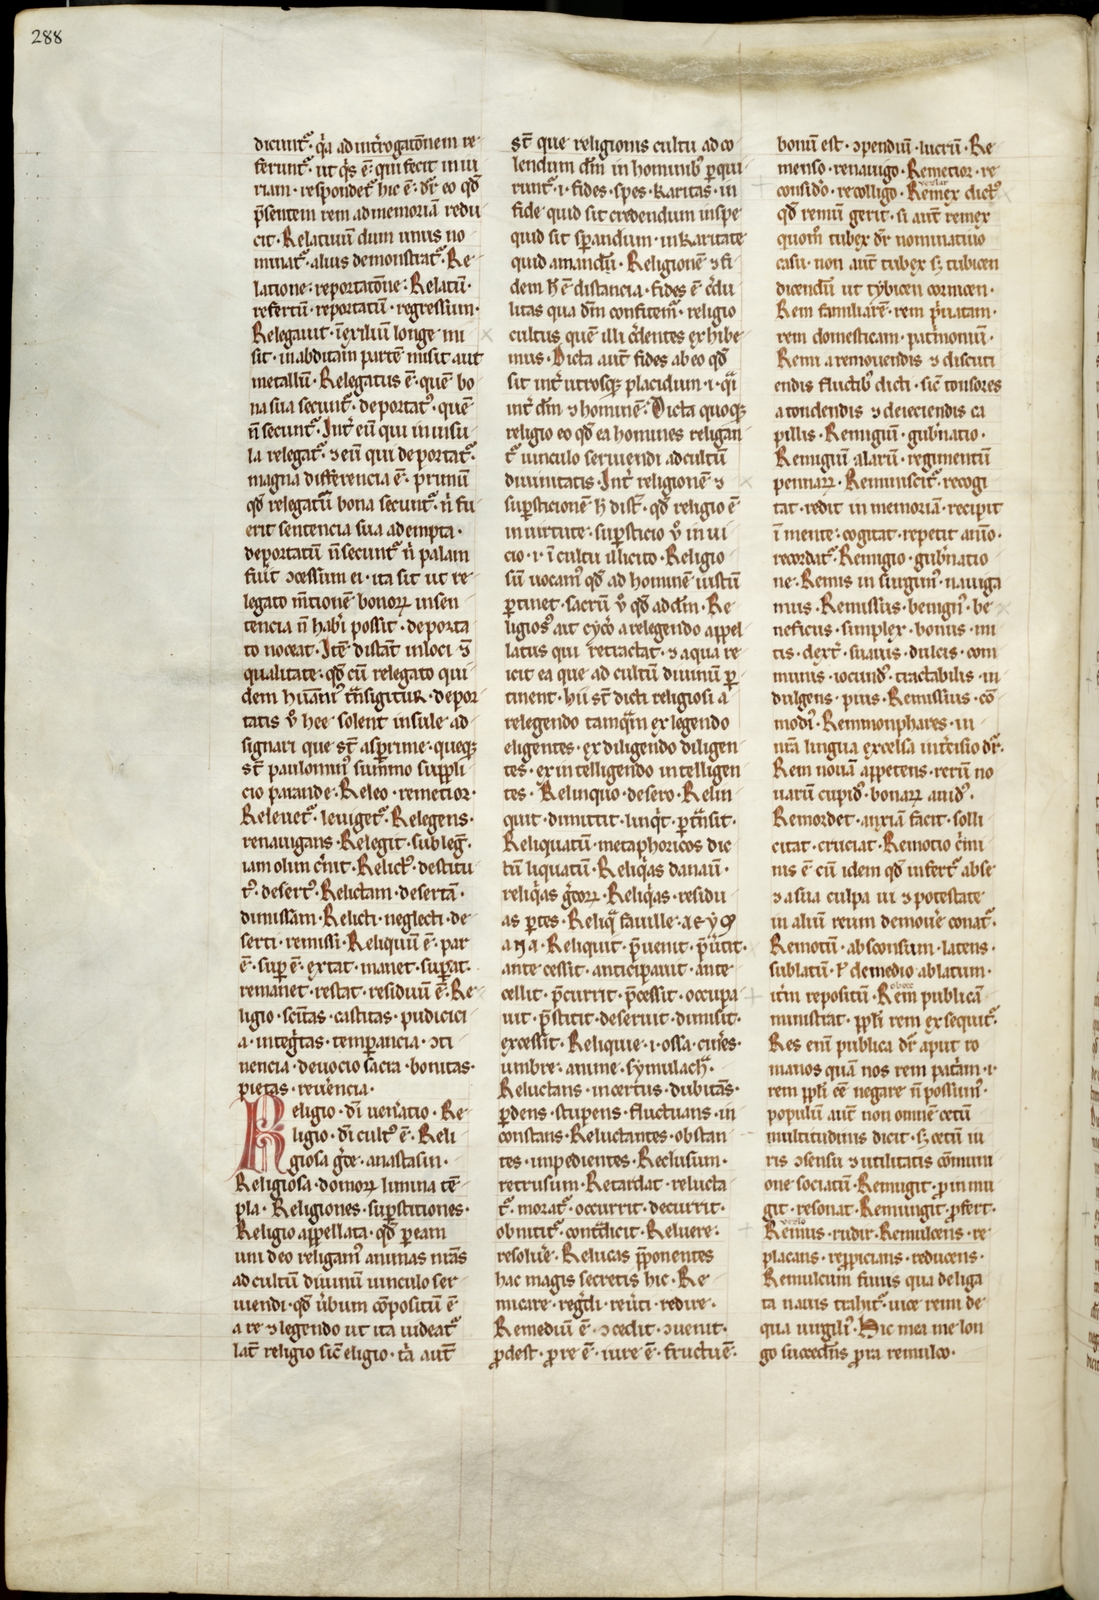 288
dicunt᷑· q̇a ad int̕rogatōnem re
ferunt᷑· ut q̇s ē· qui fecit iniu
riam· respondet᷑ hic ē· dr̄ eo qđ
p̄sentem rem ad memoriā redu
cit· Relatiuū dum unus no
minat᷑· alius demonstrat᷑· Re
latione· reportatōne· Relatū·
refertū· reportatū· regressum·
Relegauit· ī exilium longe mi
sit· in abditam partē misit aut
metallū· Relegatus ē· quē bo
na sua secunt᷑· deportatꝰ· quē
n̄ secunt᷑· Int̕ eū qui in insu
la relegat᷑· ⁊ eū qui deportat᷑·
magna differencia ē· primū
qđ relegatū bona secunt᷑· n̕ fu
erit sentencia sua adempta·
deportatū n̄ secunt᷑ n̕ palam
fuit ↄcessum ei· ita sit ut re
legato m̄tionē bonoꝝ in sen
tencia n̄ habi possit· deporta
to noceat· Itē distāt in loci
qualitate· qđ cū relegato qui
dem hūanꝰ t̄nsigitur· depor
tatis v̕ hee solent insule ad
signari que st̄ asprime· queqꝫ
st̄ paulominꝰ summo suppli
cio parande· Releo· remetior·
Releuet᷑· leuiget᷑· Relegens·
renauigans· Relegit· sub leḡ·
iam olim c̕uit· Relictꝰ· destitu
tꝰ· desertꝰ· Relictam· desertā·
dimissam· Relicti· neglecti· de
serti· remissi· Reliquū ē· par
ē· sup ē· extat· manet· supat·
remanet· restat· residuū ē· Re
ligio· sc̄itas· castitas· pudicici
a· integ̕tas· temperancia· ↄti
nencia· deuocio sacra· bonitas·
pietas· reu̕encia·
Religio· dī uen̕atio· Re
ligio· dī cultꝰ ē· Reli
giosa gr̄ce· anastasin·
Religiosa· domoꝝ limina tē
pla· Religiones· supstitiones·
Religio appellata· qđ p eam
uni deo religamꝰ animas nr̄as
ad cultū diuinū uinculo ser
uiendi· qđ u̕bum cōpositū ē
a re ⁊ legendo ut ita uideat᷑
lat̄ religio sic̄ eligio· t̕a aut̄
st̄ que religionis cultu ad co
lendum dm̄ in hominibꝰ pqui
runt᷑· i· fides· spes· karitas· in
fide· quid sit credendum in spe
quid sit sp̄andum· in karitate
quid amandū· Religionē ⁊ fi
dem h̄ ē distancia· fides ē c̕du
litas qua dm̄ confitem᷑· religio
cultus quē illi c̕dentes exhibe
mus· Dicta aut̄ fides ab eo qđ
sit int̕ utrosqꝫ placidum· i· q̄i
int̕ dm̄ ⁊ hominē· Dicta quoqꝫ
religio eo qđ ea homines religan
t᷑ uinculo seruiendi ad cultū
diuinitatis· Int̕ religionē ⁊
supsticionē h̄ dist᷑· qđ religio ē
in uirtute· supsticio v̕ in ui
cio· i· ī cultu illicito· Religio
sū uocamꝰ qđ ad hominē iustū
ptinet· sacrū v̕ qđ ad dm̄· Re
ligiosꝰ ait cyc̕o a relegendo appel
latus qui retractat· ⁊ a qua re
icit ea que ad cultū diuinū p
tinent· hii st̄ dicti religiosi a
relegendo tamq̄m ex legendo
eligentes· ex diligendo diligen
tes· ex intelligendo intelligen
tes· Relinquo· desero· Relin
quit· dimittit· linq̕t· pt̄nsit·
Reliquatū· metaphoricos dic
tū liquatum· Reliq̕as danaū·
reliq̕as g̕coꝝ· Reliq̕as· residu
as ptes· Reliq̄ fauille·
Reliquit· p̄uenit· p̄u̕tit·
ante cessit· anticipauit· ante
cellit· p̄currit· p̄cessit· occupa
uit· p̄stitit· deseruit· dimisit·
excessit· Reliquie· i· ossa· cin̕es·
umbre· anime· symulach̄·
Reluctans· incertus· dubitās·
pdens· stupens· fluctuans· in
constans· Reluctantes· obstan
tes· impedientes· Reclusum·
retrusum· Retardat· relucta
t᷑· morat᷑· occurrit· decurrit·
obnitit᷑· cont̄dicit· Reluere·
resolu̕e· Relucas p̄ponentes
hac magis secretis hic· Re
micare· reg̕di· reu̕ti· redire·
Remediū ē· ↄcedit· ↄuenit·
ꝓdest· ꝓ re ē· iure ē· fructu ē·
bonū est· ↄpendiū· lucrū· Re
menso· renauigo· Remetior· re
consido· recolligo· Remex dictꝰ
qđ remū gerit· si aut̄ remex
quom̊ tubex dr̄ nominatiuo
casu· non aut̄ tubex sꝫ tubicen
dicendū ut tybicen cornicen·
Rem familiarē· rem p̕uatam·
rem domesticam· pat̕moniū·
Remi a remouendis ⁊ discuti
endis fluctibꝰ dicti· sic̄ tonsores
a tondendis ⁊ deieciendis ca
pillis· Remigiū· gub̕natio·
Remigiū alarū· regimentū
pennaꝝ· Reminiscit᷑· recogi
tat· redit in memoriā· recipit
ī mente· cogitat· repetit aīo·
recordat᷑· Remigio· gub̕natio
ne· Remis insurgimꝰ· nauiga
mus· Remissius· benignꝰ· be
neficus· simplex· bonus· mi
tis· dext̕· suauis· dulcis· com
munis· iocundꝰ· tractabilis· in
dulgens· pius· Remissius· cō
modi· Remmonphares· in
nr̄a lingua excelsa int̕cisio dr̄·
Rem nouā appetens· rerū no
uarū cupidꝰ· bonaꝝ auidꝰ·
Remordet· anxiā facit· solli
citat· cruciat· Remotio c̕mi
nis ē cū idem qđ infert᷑ abse
⁊ a sua culpa ui ⁊ potestate
in aliū reum demou̕e conat᷑·
Remotū· absconsum· latens·
sublatū· de medio ablatum·
it̄m repositū· Rem publicā
ministrat· ppl̕i rem exsequit᷑·
Res eni publica dr̄ aput ro
manos quā nos rem pat̕am· i·
rem ppl̕i cē negare n̄ possumꝰ·
populū aut̄ non omnē cetū
multitudinis dicit· sꝫ cetū iu
ris ↄsensu ⁊ utilitatis cōmuni
one sociatū· Remugit· ꝓin mu
git· resonat· Remungit· ꝓfert·
Remus· rudir· Remulcens· re
placans· respicians· reducens·
Remulcum funis qua deliga
ta nauis trahit᷑· uice remi de
qua uirgiliꝰ· Hic mea me lon
go succedens prora remulco·